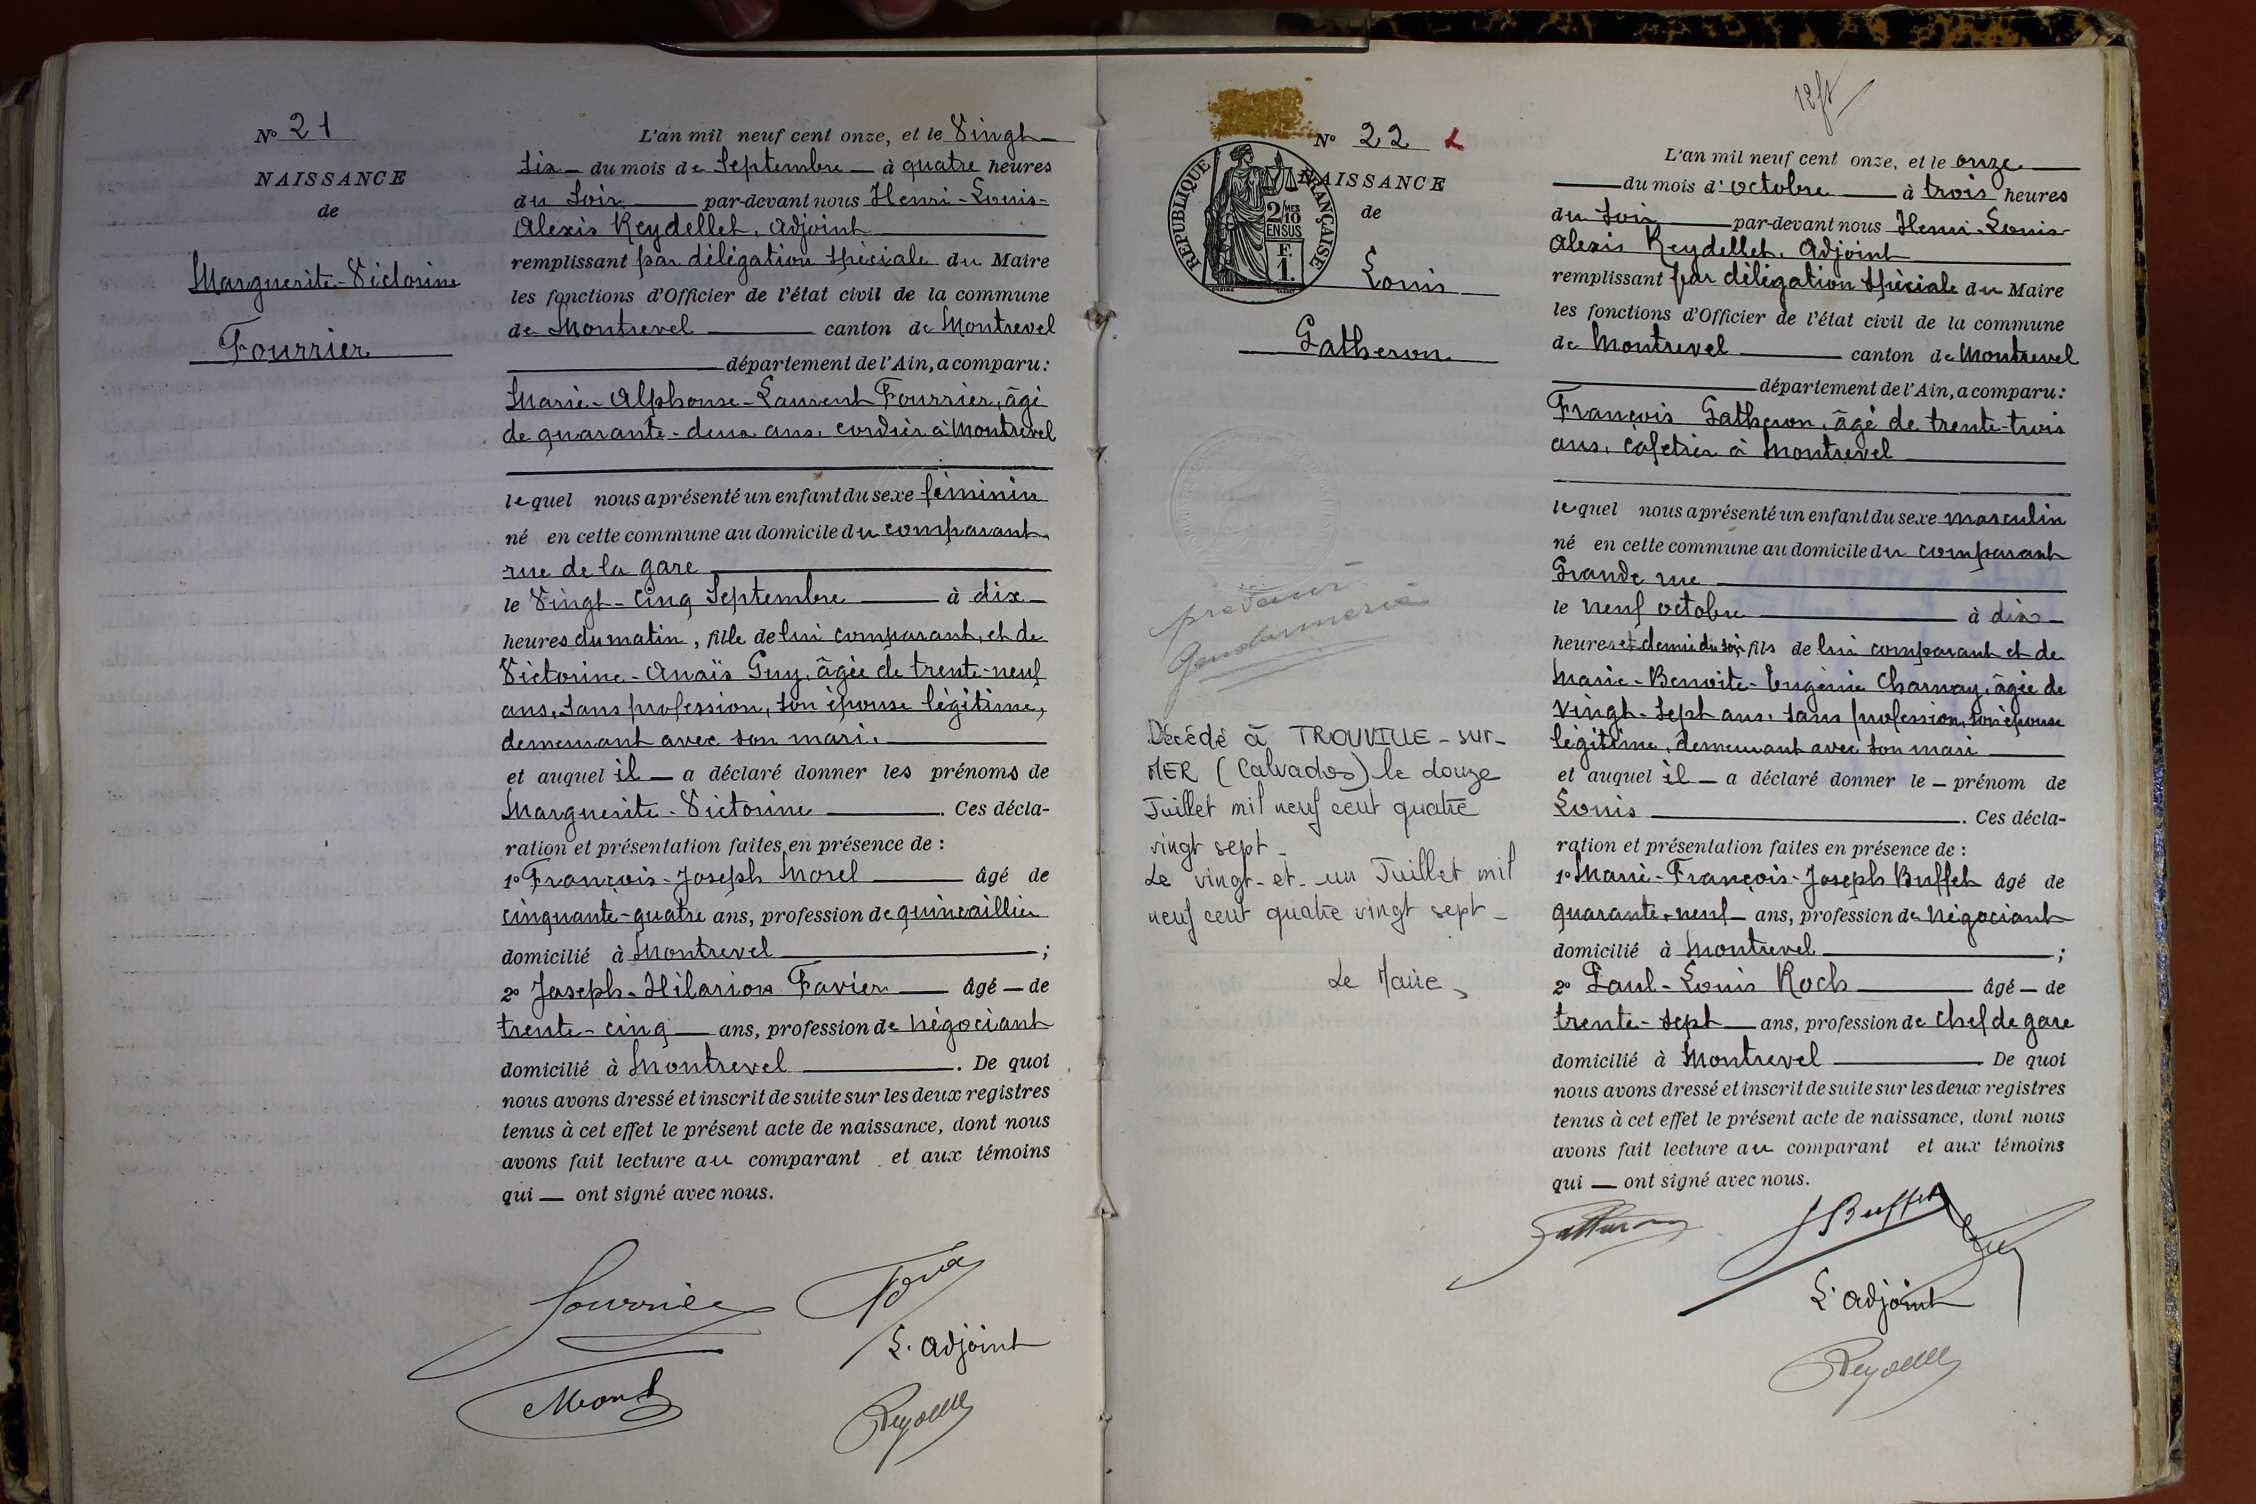 N° 21
NAISSANCE
de
Marguerite-Victorine
Fourrier
L'an mil neuf cent onze, et le Vingt
six du mois de Septembre à quatre heures
du Soir par-devant nous Henri-Louis-
Alexis Reydellet, adjoint
remplissant par délégation spéciale du Maire
les fonctions d'Officier de l'état civil de la commune
de Montrevel canton de Montrevel
département de l'Ain, a comparu :
Marie-Alphonse-Laurent Fourrier, âgé
de quarante-deux ans, cordier à Montrevel
lequel nous a présenté un enfant du sexe féminin
né en cette commune au domicile du comparant
rue de la gare
le Vingt-cinq Septembre à dix
heures du matin, fille de lui comparant, et de
Victorine-Anaïs Guy, âgée de trente-neuf
ans, sans profession, son épouse légitime,
demeurant avec son mari.
et auquel il a déclaré donner les prénoms de
Marguerite-Victorine. Ces décla-
ration et présentation faites en présence de :
1° François-Joseph Morel âgé de
cinquante-quatre ans, profession de quincaillier
domicilié à Montrevel ;
2° Joseph-Hilarion Favier âgé de
trente-cinq ans, profession de négociant
domicilié à Montrevel. De quoi
nous avons dressé et inscrit de suite sur les deux registres
tenus à cet effet le présent acte de naissance, dont nous
avons fait lecture au comparant et aux témoins
qui ont signé avec nous.
Fourrier
L'adjoint
Morel
Reydellet
12 ft
N° 22
NAISSANCE
de
RÉPUBLIQUE FRANÇAISE
2/10 MES
EN SUS
F.
1.
Louis
Gatheron
Gendarmerie
Décédé à TROUVILLE-sur-
MER (Calvados) le douze
Juillet mil neuf cent quatre
vingt sept_
Le vingt-et-un Juillet mil
neuf cent quatre vingt sept_
Le Maire,
L'an mil neuf cent onze, et le onze
du mois d'octobre à trois heures
du soir par-devant nous Henri-Louis
Alexis Reydellet, Adjoint
remplissant par délégation spéciale du Maire
les fonctions d'Officier de l'état civil de la commune
de Montrevel canton de Montrevel
département de l'Ain, a comparu :
François Gatheron, âgé de trente-trois
ans, cafetier à Montrevel
lequel nous a présenté un enfant du sexe masculin
né en cette commune au domicile du comparant
Grande rue
le neuf octobre à dix
heures et demie du soir, fils de lui comparant et de
Marie-Benoite-Eugénie Charnay, âgée de
vingt-sept ans, sans profession, son épouse
légitime, demeurant avec son mari
et auquel il a déclaré donner le prénom de
Louis. Ces décla-
ration et présentation faites en présence de :
1° Marie-François-Joseph Buffet âgé de
quarante-neuf ans, profession de négociant
domicilié à Montrevel ;
2° Paul-Louis Roch âgé de
trente-sept ans, profession de chef de gare
domicilié à Montrevel De quoi
nous avons dressé et inscrit de suite sur les deux registres
tenus à cet effet le présent acte de naissance, dont nous
avons fait lecture au comparant et aux témoins
qui ont signé avec nous.
Gatheron
J Buffet
L'adjoint
Reydellet